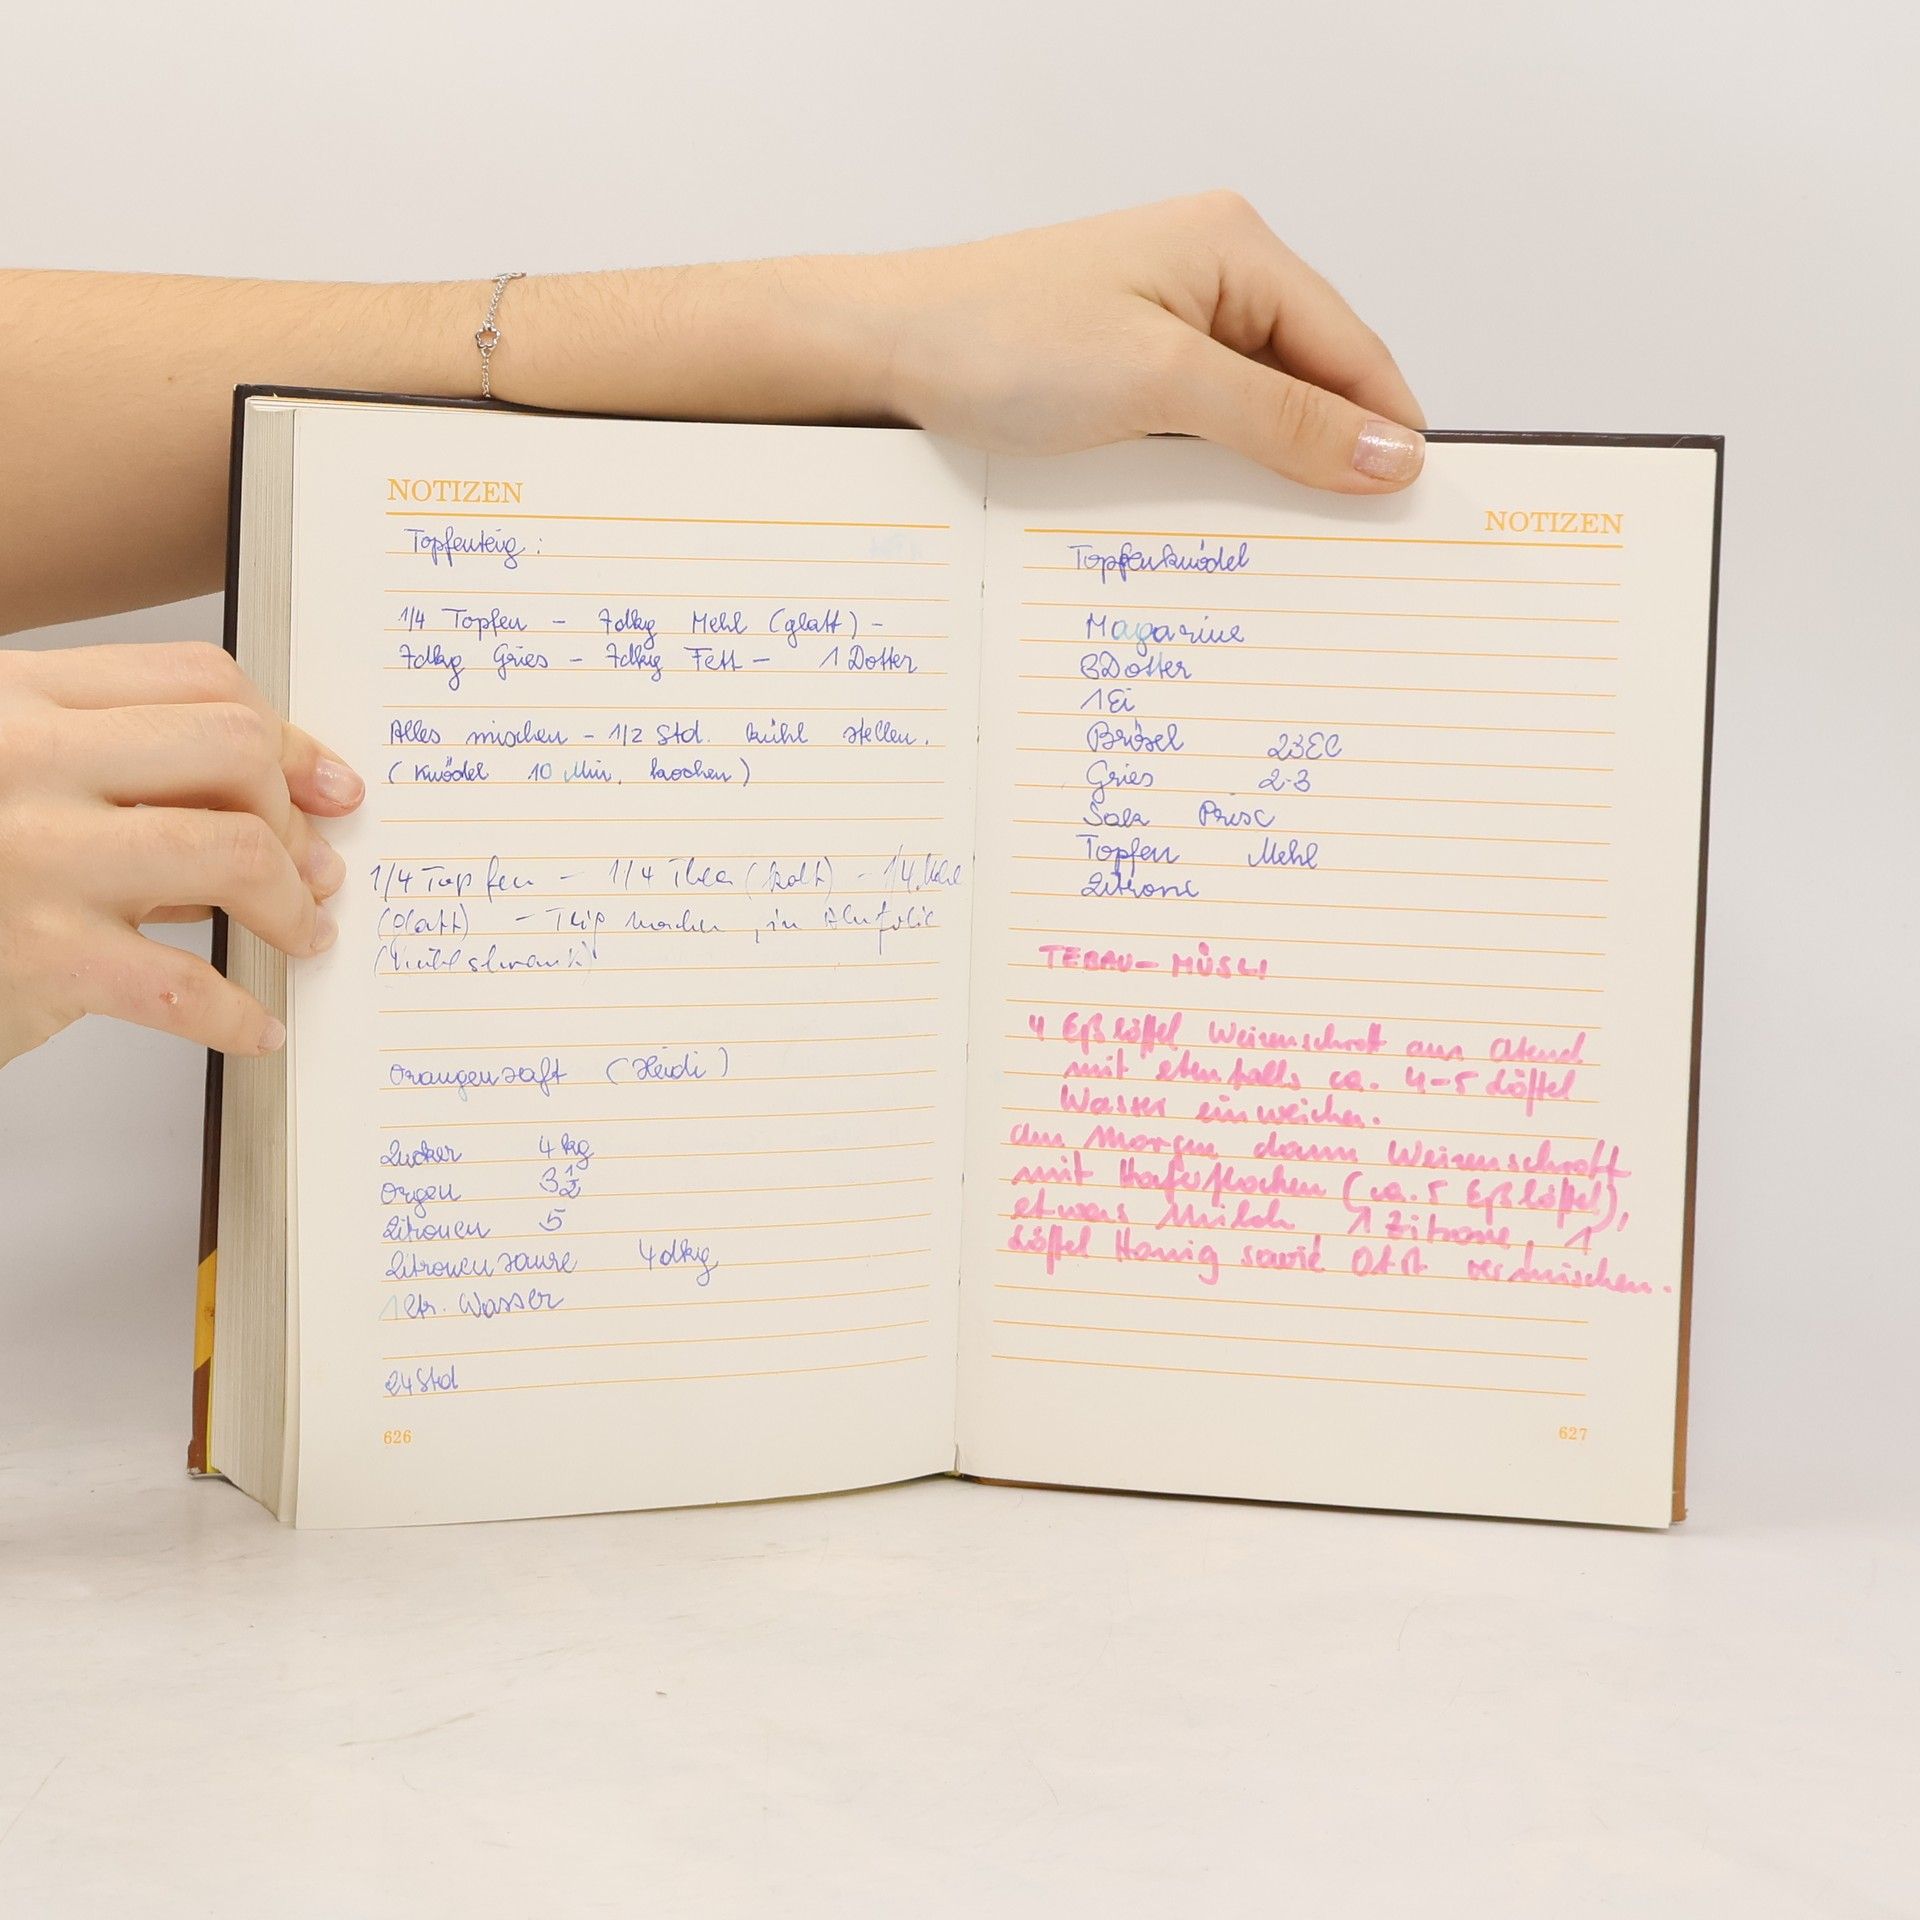 NOTIZEN
Topfenteig:
1/4 Topfen - 7dkg Mehl (glatt) -
7dkg Gries - 7dkg Fett - 1 Dotter
Alles mischen - 1/2 Std. kühl stellen.
(Knödel 10 Min. kochen)
1/4 Topfen - 1/4 Thea (kalt) - 1/4 Mehl
(glatt) - machen, in Alufolie
(Kühlschrank)
Orangensaft (Heidi)
Zucker 4 kg
Orgen 3
Zitronen 5
Zitronensaure 4dkg
1 Ltr. Wasser
24 Std
626
NOTIZEN
Topfenknödel
Magarine
Dotter
1 Ei
Brösel
Gries 2-3
Salz Prise
Topfen Mehl
Zitrone
MÜSLI
4 Eßlöffel Weizenschrott am Abend
mit ebenfalls ca. 4-5 Löffel
Wasser einweichen.
Am Morgen dann Weizenschrott
mit Haferflocken (ca. 5 Eßlöffel),
etwas Milch 1 Zitrone, 1
Löffel Honig sowie Obst vermischen.
627